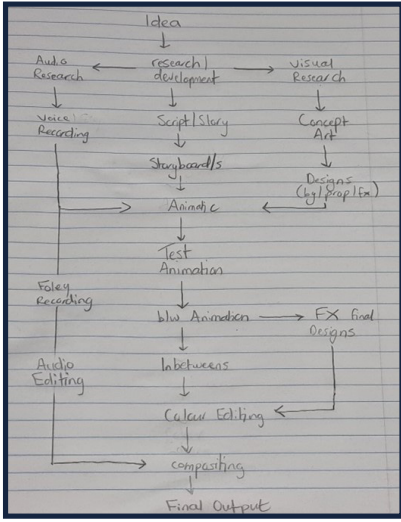 Idea
Audio
Research
research/
development
Visual
Research
Voice
Recording
Script/Story
Concept
Art
Storyboard/s
Designs
(bg/prop/fx)
Animatic
Test
Animation
Foley
Recording
b/w Animation
FX final
Designs
Audio
Editing
Inbetweens
Colour Editing
compositing
Final Output